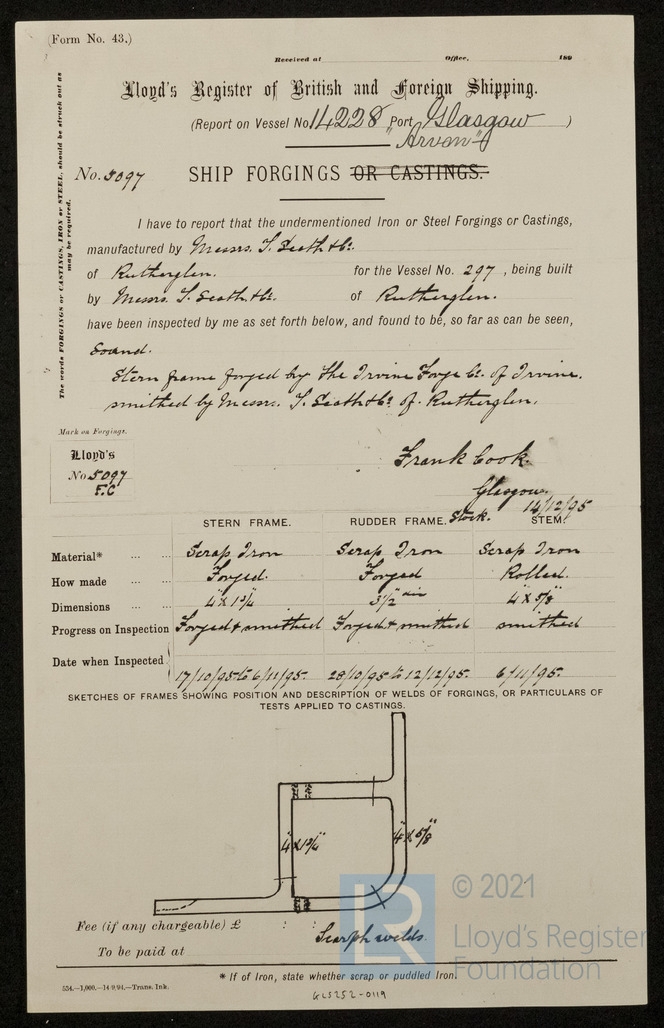 (Form No. 43.)
Received at Office, 189
Lloyd's Register of British and Foreign Shipping.
(Report on Vessel No 14228 Port Glasgow )
"Arvon"
No. 5097 SHIP FORGINGS OR CASTINGS.
The words FORGINGS or CASTINGS, IRON or STEEL, should be struck out as
may be required.
I have to report that the undermentioned Iron or Steel Forgings or Castings,
manufactured by Messrs. T. Seath & Co.
of Rutherglen. for the Vessel No. 297, being built
by Messrs T. Seath & Co. of Rutherglen.
have been inspected by me as set forth below, and found to be, so far as can be seen,
sound.
Stern frame forged by the Irvine Forge Co. of Irvine.
smithed by Messrs. T. Seath & Co. of Rutherglen.
Mark on Forgings.
Lloyd's
No. 5097
F.C
Frank Cook.
Glasgow.
14/12/95
STERN FRAME. RUDDER FRAME. Stock. STEM.
Material* Scrap Iron Scrap Iron Scrap Iron
How made Forged. Forged Rolled.
Dimensions 4" x 1 3/4" 3 1/2" dia 4" x 5/8"
Progress on Inspection Forged & smithed Forged & smithed smithed
Date when Inspected 17/10/95 to 6/11/95. 28/10/95 to 12/12/95. 6/11/95.
SKETCHES OF FRAMES SHOWING POSITION AND DESCRIPTION OF WELDS OF FORGINGS, OR PARTICULARS OF
TESTS APPLIED TO CASTINGS.
4" x 1 3/4" 4" x 5/8"
© 2021
Lloyd's Register
Foundation
LR
Fee (if any chargeable) £ : :
Scarph welds.
To be paid at
* If of Iron, state whether scrap or puddled Iron.
554.—1,000.—14 9.94.—Trans. Ink.
GLS252-0119